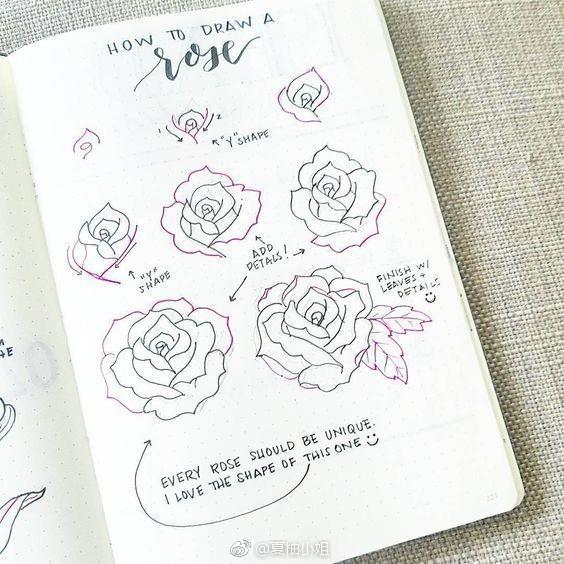 HOW TO DRAW A
rose
1 2
"Y" SHAPE
"Y"
SHAPE
ADD
DETALS!
FINISH W/
LEAVES +
DETAILS
EVERY ROSE SHOULD BE UNIQUE.
I LOVE THE SHAPE OF THIS ONE
@夏柚小姐